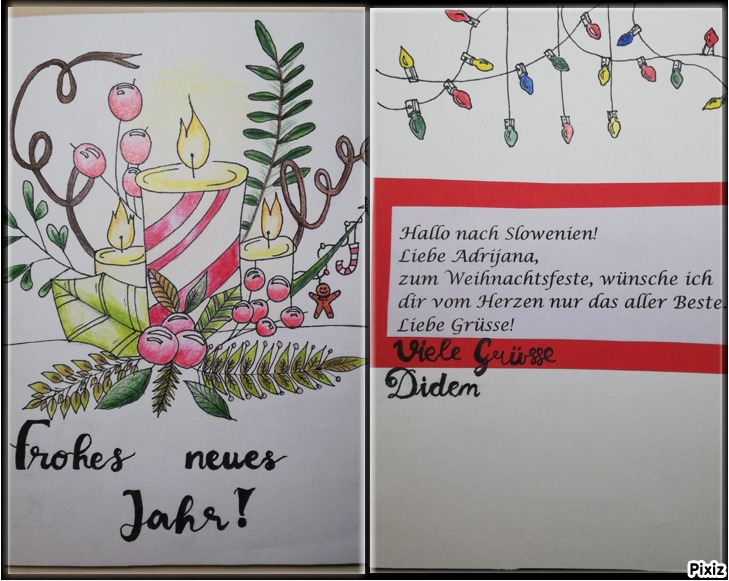 Frohes neues
Jahr!
Hallo nach Slowenien!
Liebe Adrijana,
zum Weihnachtsfeste, wünsche ich
dir vom Herzen nur das aller Beste.
Liebe Grüsse!
Viele Grüsse
Didem
Pixiz